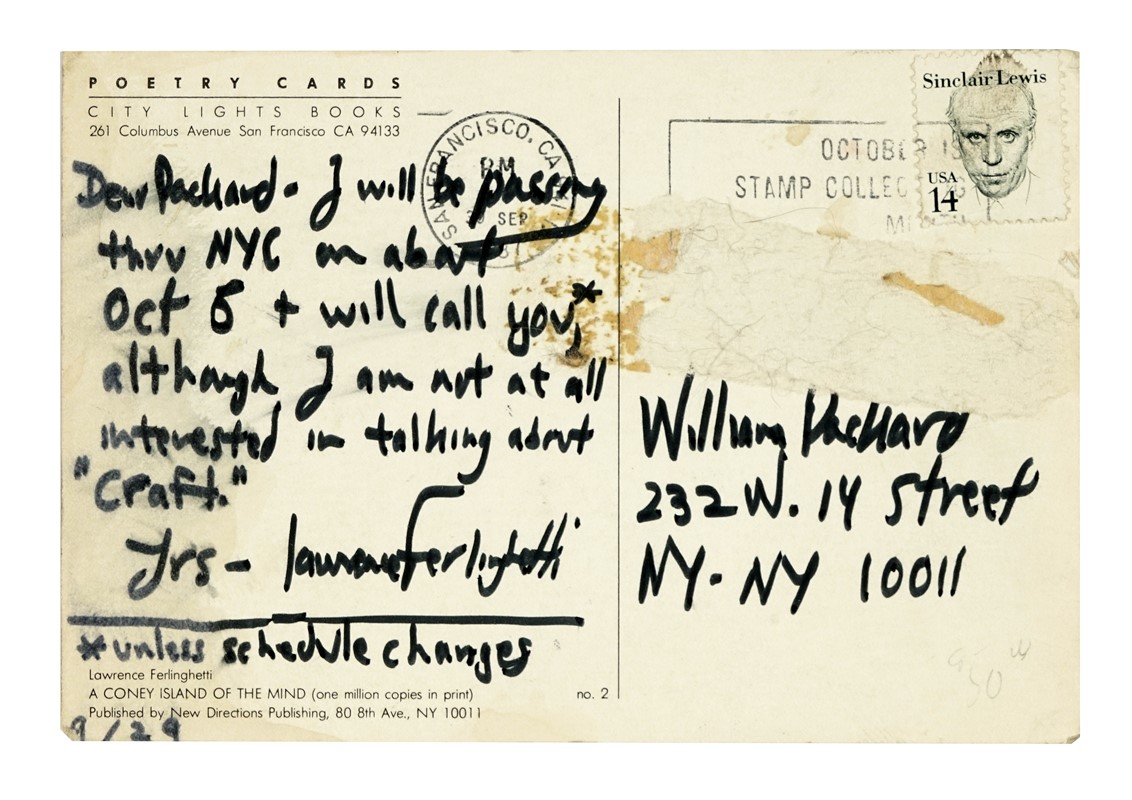 POETRY CARDS
CITY LIGHTS BOOKS
261 Columbus Avenue San Francisco CA 94133
Dear Packard - I will be passing
thru NYC on about
Oct 8 + will call you,*
although I am not at all
interested in talking about
"Craft."
Yrs - Lawrence Ferlinghetti
*unless schedule changes
Lawrence Ferlinghetti
A CONEY ISLAND OF THE MIND (one million copies in print)
Published by New Directions Publishing, 80 8th Ave., NY 10011
no. 2
9/29
SAN FRANCISCO, CA
PM
30 SEP
OCTOBER IS
STAMP COLLEC
Sinclair Lewis
USA
14
William Packard
232 W. 14 Street
NY - NY 10011